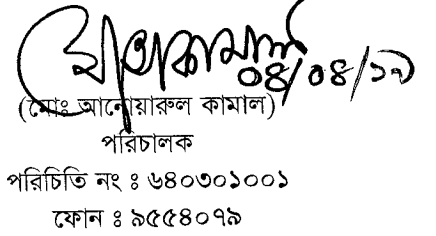 ০৪/০৪/১৯
(মোঃ আনোয়ারুল কামাল)
পরিচালক
পরিচিতি নং ঃ ৬৪০৩০১০০১
ফোন ঃ ৯৫৫৪০৭৯